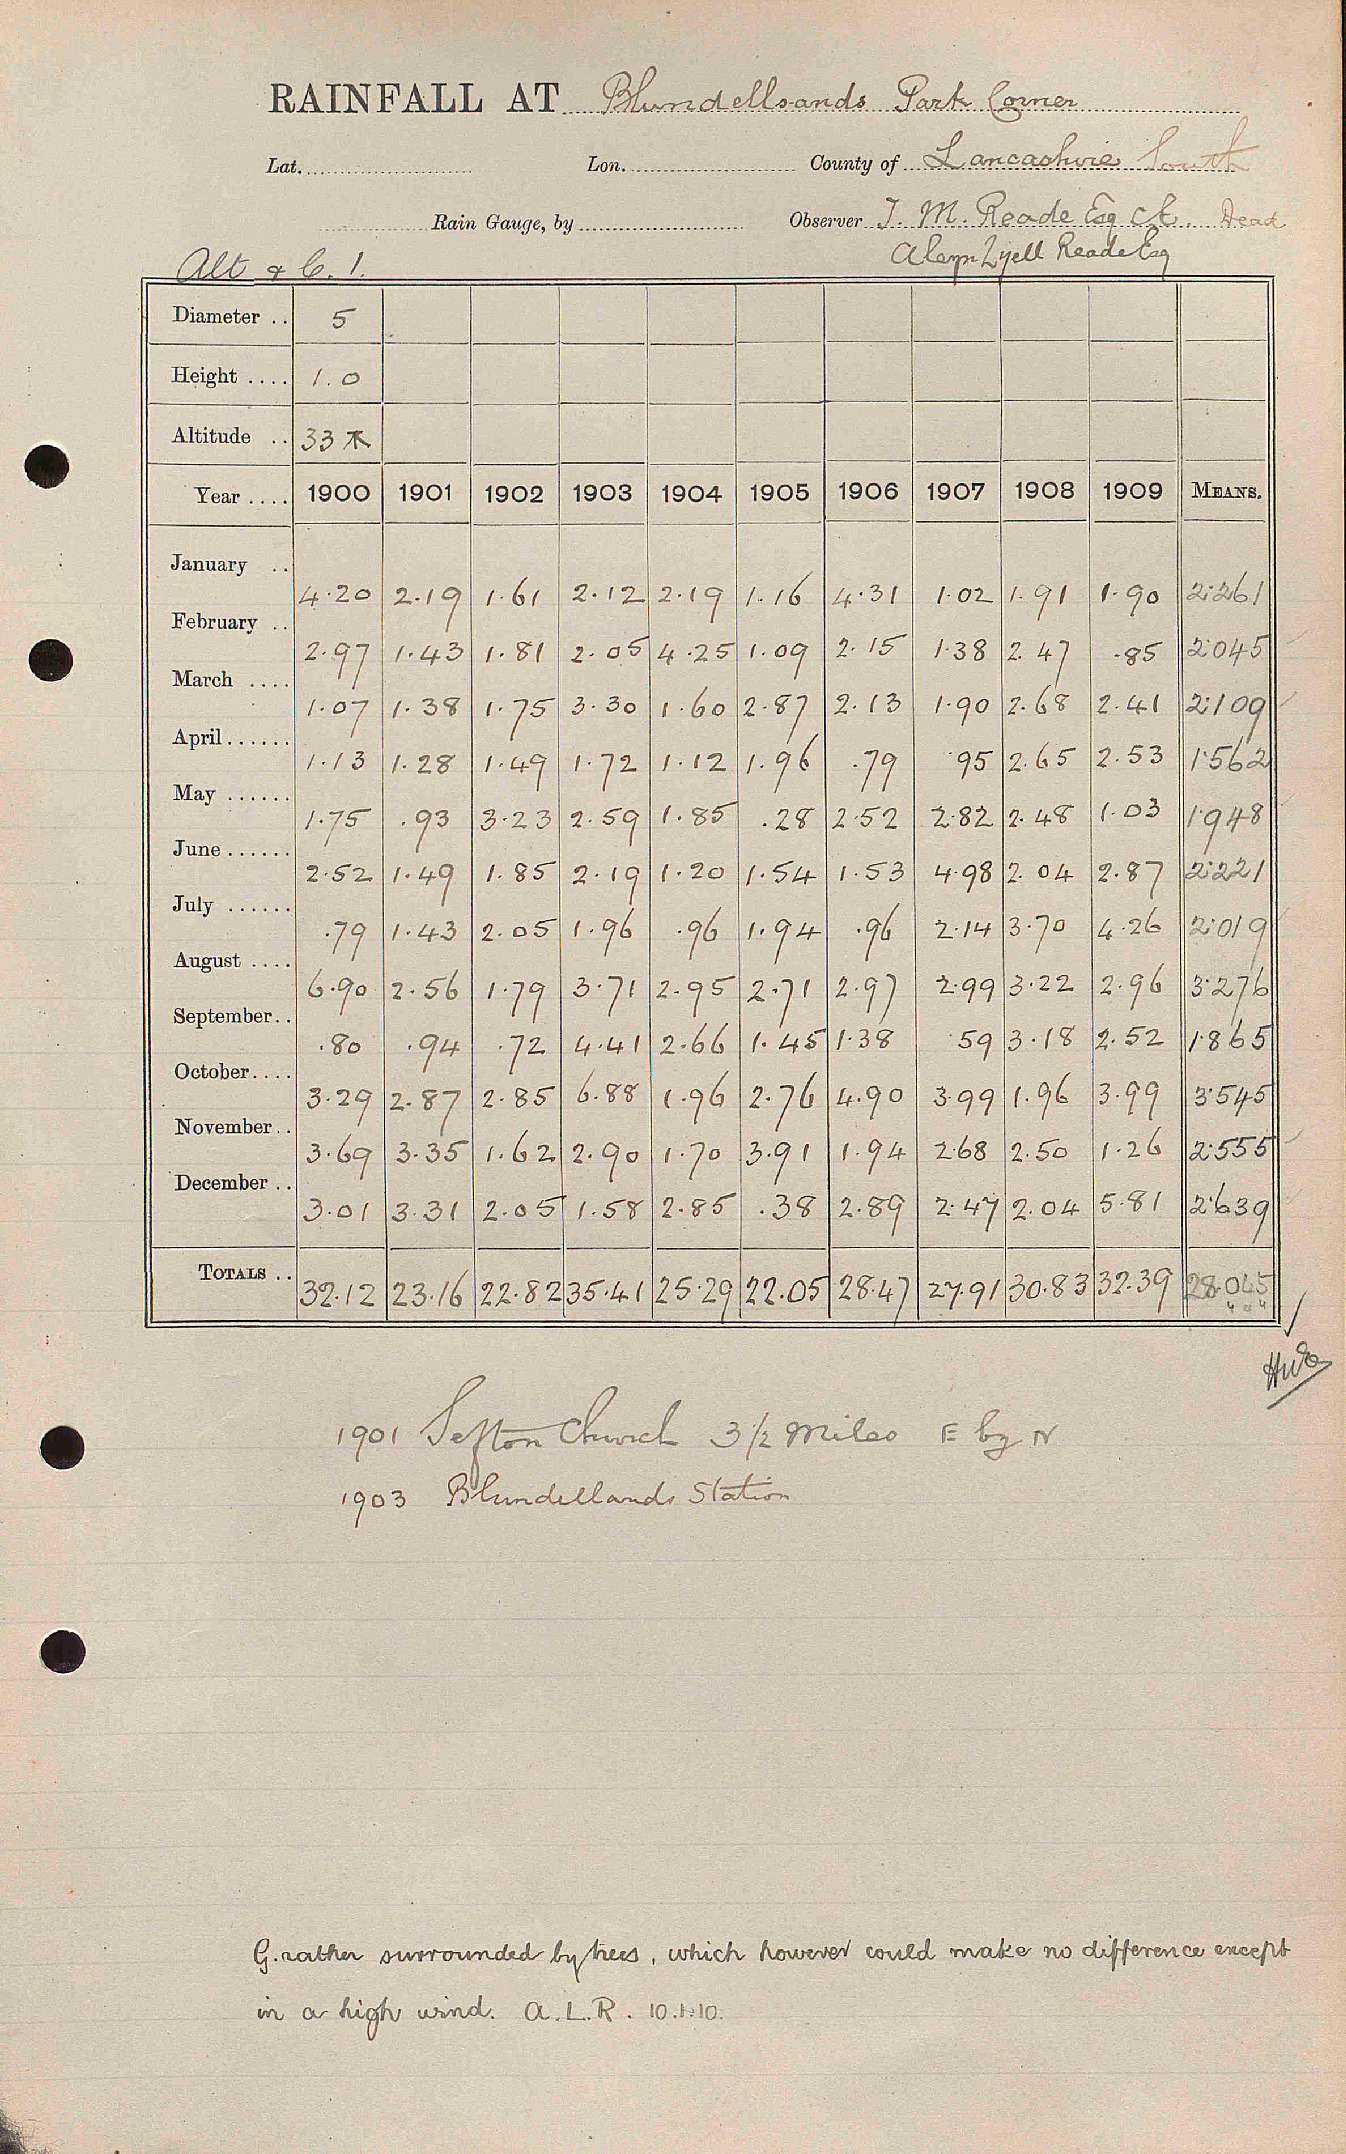 RAINFALL AT Blundellsands Park Corner
Lat. Lon. County of Lancashire South
Rain Gauge, by Observer T. M. Reade Esq C.E. Dead
Aleyn Lyell Reade Esq
Alt & C. 1.
Diameter .. 5
Height .... 1.0
Altitude .. 33
Year .... 1900 1901 1902 1903 1904 1905 1906 1907 1908 1909 MEANS.
January .. 4.20 2.19 1.61 2.12 2.19 1.16 4.31 1.02 1.91 1.90 2.261
February .. 2.97 1.43 1.81 2.05 4.25 1.09 2.15 1.38 2.47 .85 2.045
March .... 1.07 1.38 1.75 3.30 1.60 2.87 2.13 1.90 2.68 2.41 2.109
April...... 1.13 1.28 1.49 1.72 1.12 1.96 .79 .95 2.65 2.53 1.562
May ...... 1.75 .93 3.23 2.59 1.85 .28 2.52 2.82 2.48 1.03 1.948
June...... 2.52 1.49 1.85 2.19 1.20 1.54 1.53 4.98 2.04 2.87 2.221
July ...... .79 1.43 2.05 1.96 .96 1.94 .96 2.14 3.70 4.26 2.019
August .... 6.90 2.56 1.79 3.71 2.95 2.71 2.97 2.99 3.22 2.96 3.276
September.. .80 .94 .72 4.41 2.66 1.45 1.38 .59 3.18 2.52 1.865
October.... 3.29 2.87 2.85 6.88 1.96 2.76 4.90 3.99 1.96 3.99 3.545
November.. 3.69 3.35 1.62 2.90 1.70 3.91 1.94 2.68 2.50 1.26 2.555
December .. 3.01 3.31 2.05 1.58 2.85 .38 2.89 2.47 2.04 5.81 2.639
TOTALS .. 32.12 23.16 22.82 35.41 25.29 22.05 28.47 27.91 30.83 32.39 28.045
1901 Sefton Church 3 1/2 Miles E by N
1903 Blundellands Station
G. rather surrounded by trees, which however could make no difference except
in a high wind. A.L.R. 10.1.10.